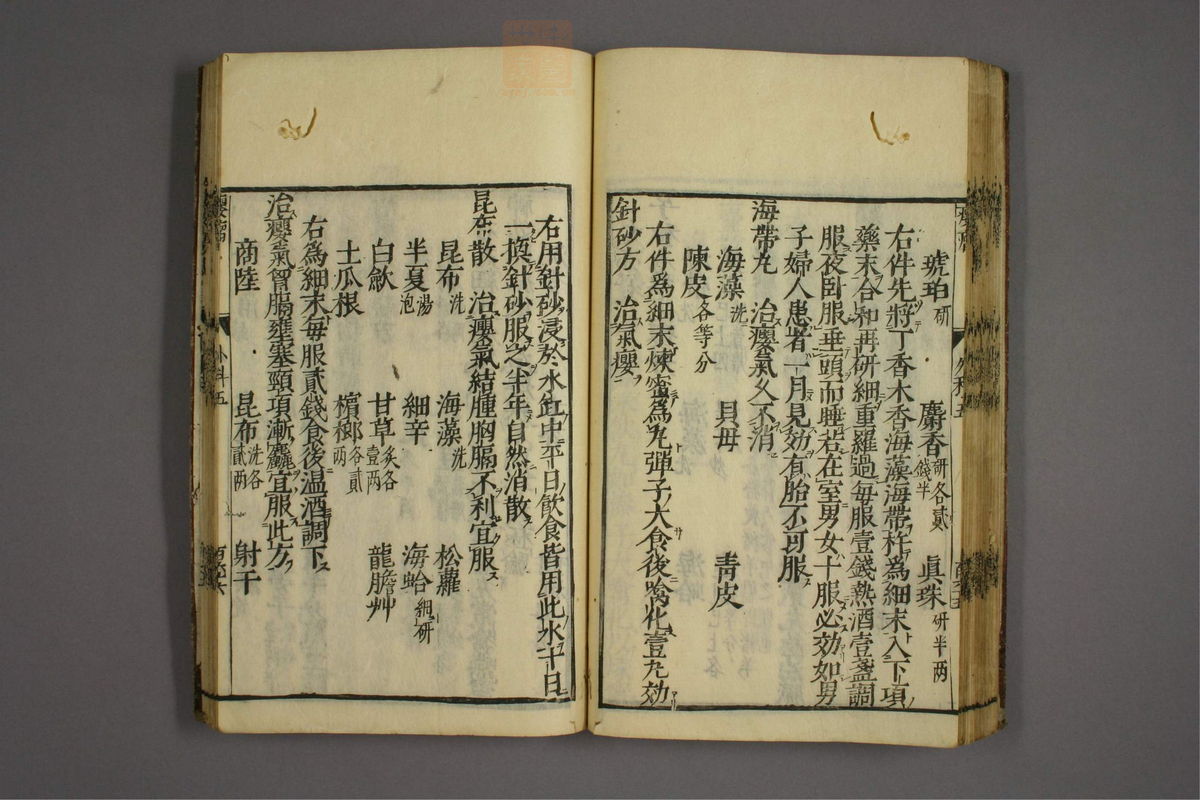 琥珀研　麝香研各貳錢半　眞珠研半两
右件先將丁香木香海藻海帶杵為細末入下項
藥末合和再研細重羅過每服壹錢熱酒壹盞調
服夜卧服垂頭而睡若在室男女十服必効如男
子婦人患者一月見効有胎不可服
海帶丸　治癭氣久不消
海藻洗　貝母　青皮
陳皮各等分
右件為細末煉蜜為丸彈子大食後噙化壹丸効
針砂方　治氣癭
右用針砂浸於水缸中平日飲食皆用此水十日
一換針砂服之半年自然消散
昆布散　治癭氣結腫胸膈不利宜服
昆布洗　海藻洗　松蘿
半夏湯泡　細辛　海蛤細研
白歛　甘草炙各壹两　龍膽艸
土瓜根　檳榔各貳两
右為細末每服貳錢食後温酒調下
治癭氣曾膈壅塞頸項漸麤宜服此方
商陸　昆布洗各貳两　射干